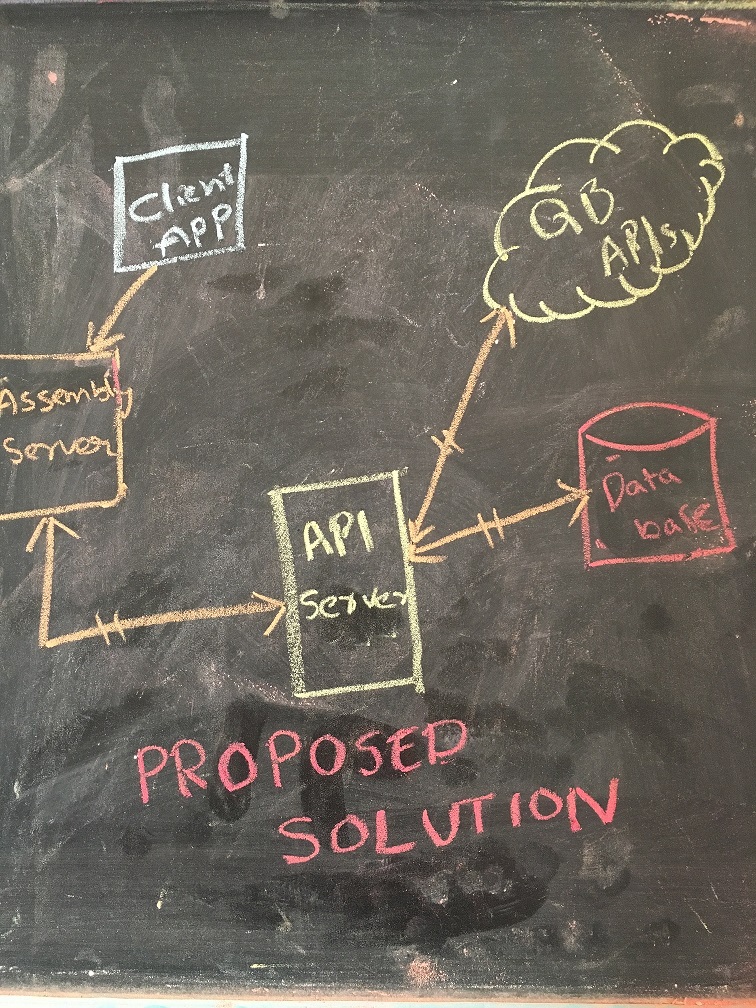 Client
APP
QB
APIs
Assembly
Server
Data
base
API
Server
PROPOSED
SOLUTION